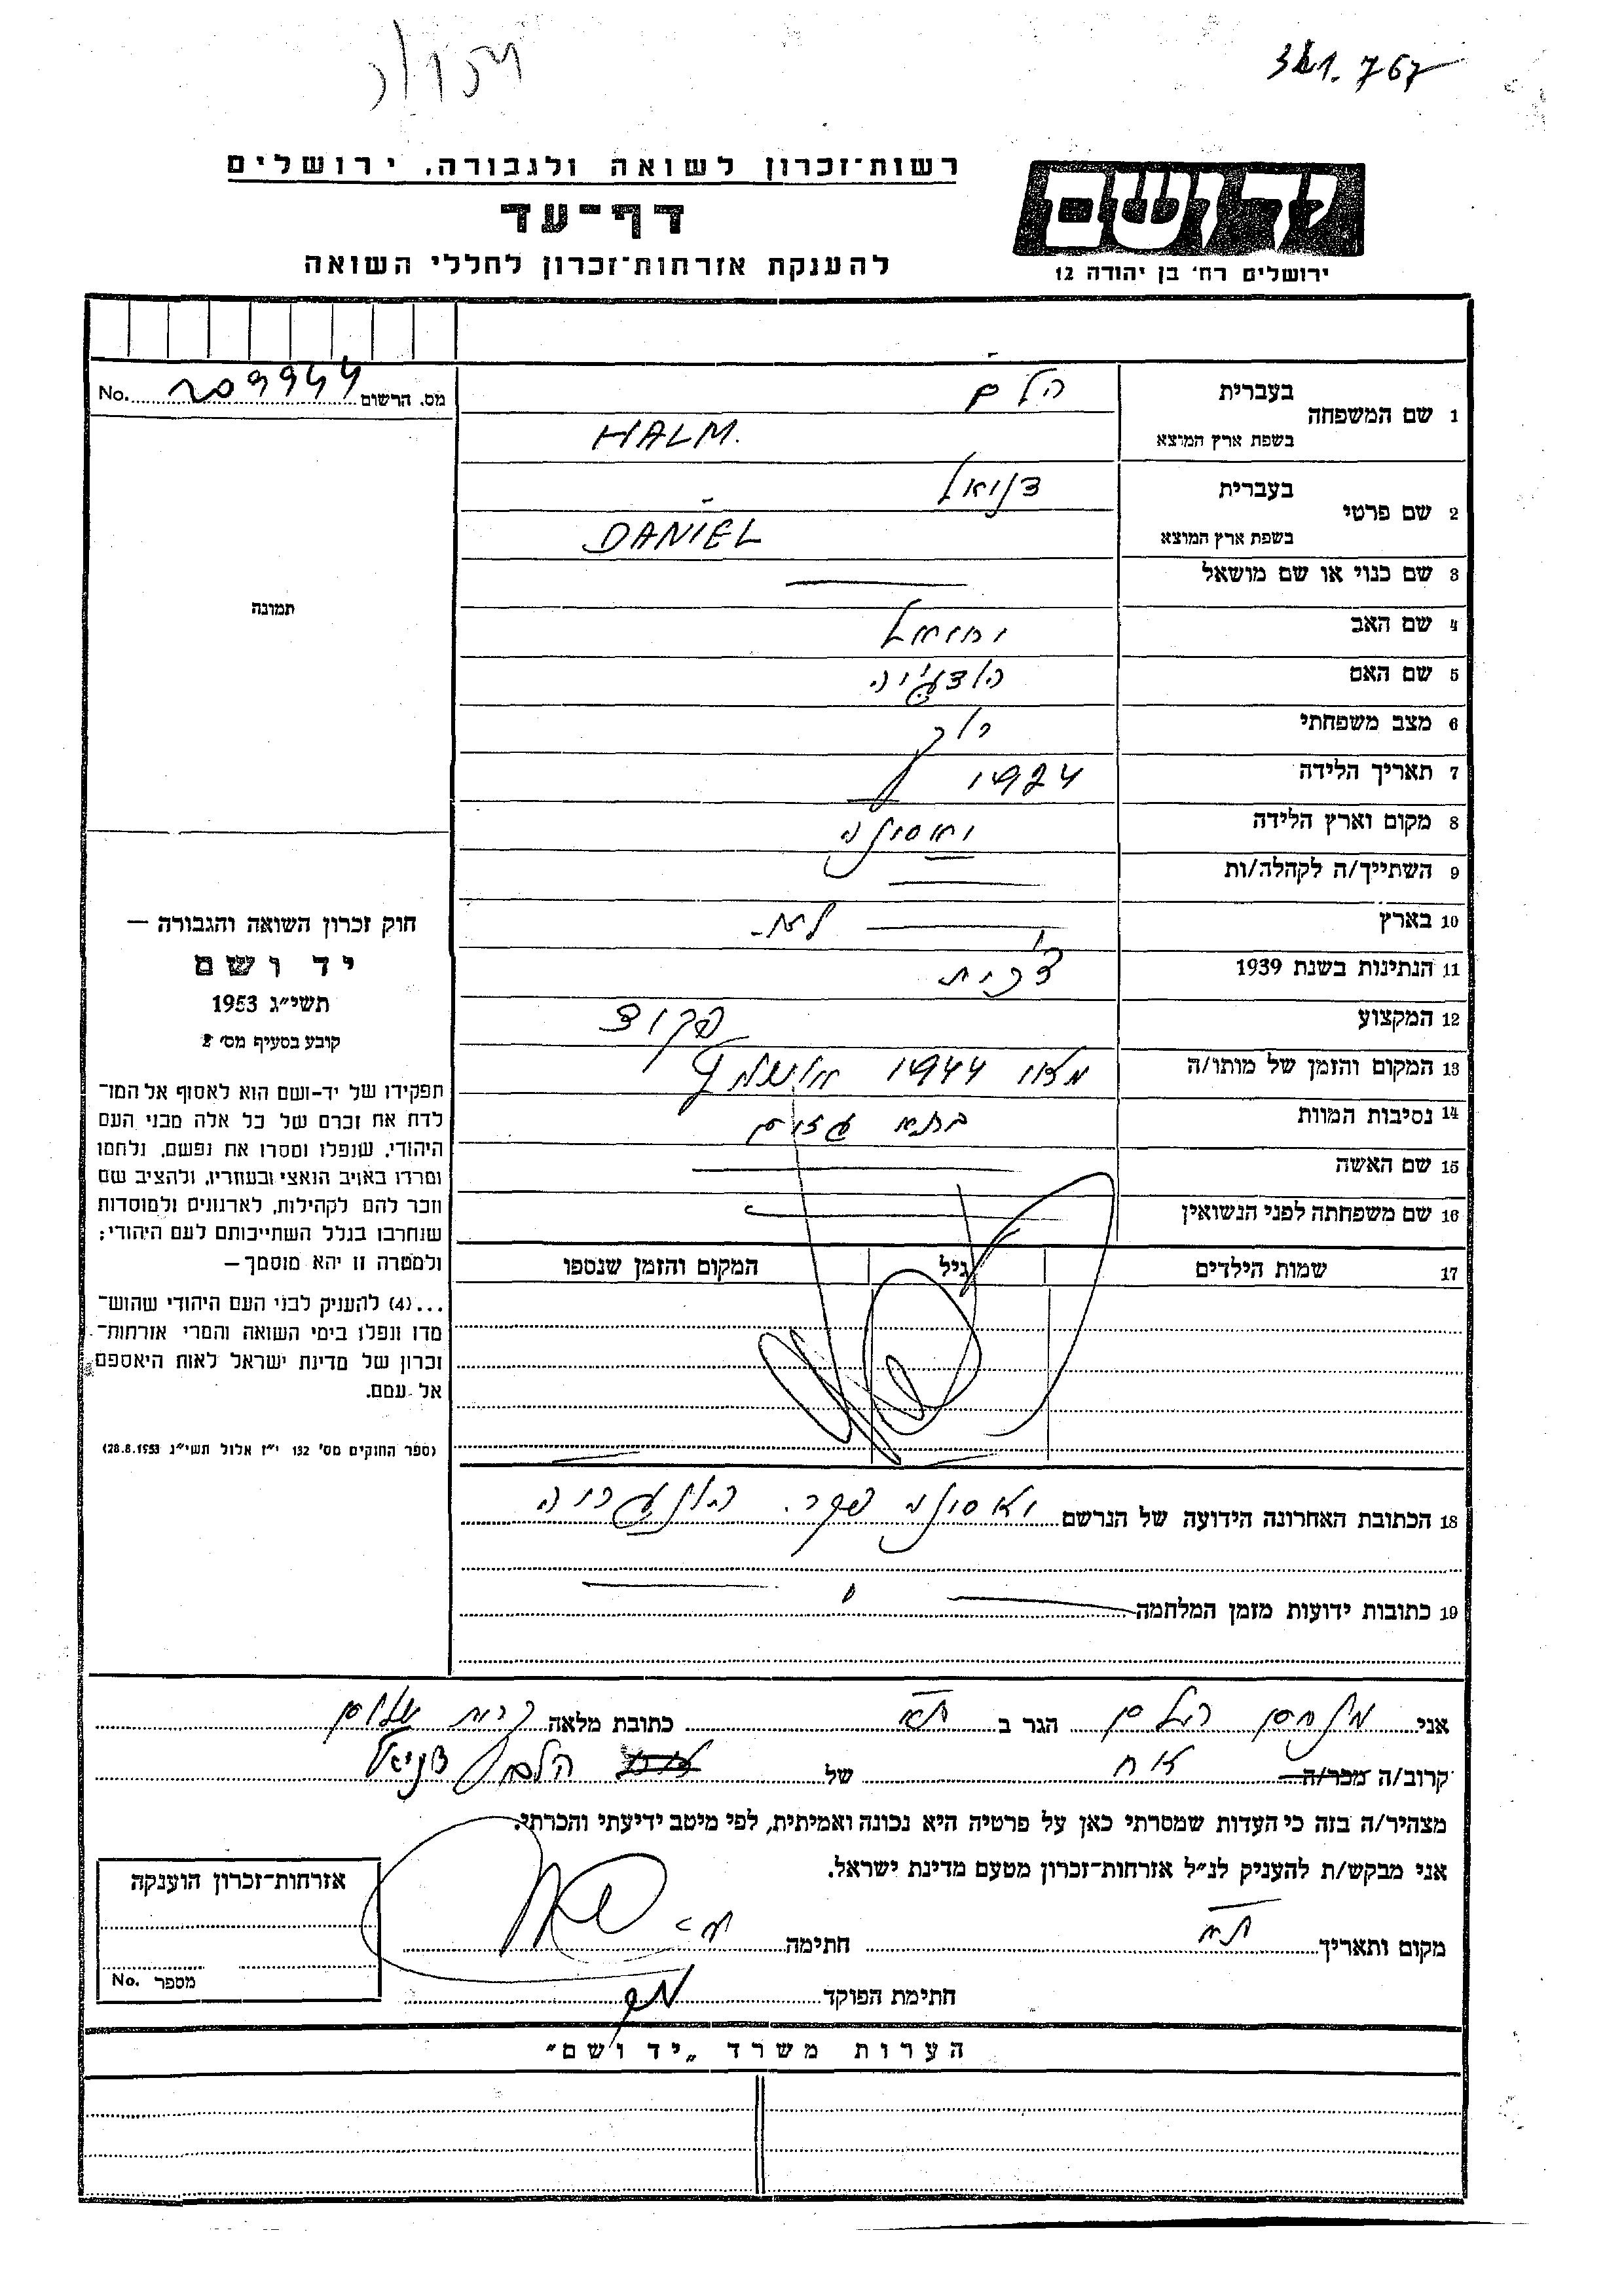 341.767
רשות־זכרון לשואה ולגבורה, ירושלים
דף־עד
להענקת אזרחות־זכרון לחללי השואה
ידושם
ירושלים רח' בן יהודה 12
מס. הרשום 209944 No.
1 שם המשפחה בעברית הלם
בשפת ארץ המוצא HALM.
2 שם פרטי בעברית דניאל
בשפת ארץ המוצא DANIEL
3 שם כנוי או שם מושאל
4 שם האב
5 שם האם
6 מצב משפחתי רוק
7 תאריך הלידה 1924
8 מקום וארץ הלידה
9 השתייך/ה לקהלה/ות
10 בארץ לא
11 הנתינות בשנת 1939
12 המקצוע פקיד
13 המקום והזמן של מותו/ה 1944
14 נסיבות המוות בתא גזים
15 שם האשה
16 שם משפחתה לפני הנשואין
17 שמות הילדים גיל המקום והזמן שנספו
18 הכתובת האחרונה הידועה של הנרשם
19 כתובות ידועות מזמן המלחמה
תמונה
חוק זכרון השואה והגבורה —
יד ושם
תשי״ג 1953
קובע בסעיף מס' 2
תפקידו של יד-ושם הוא לאסוף אל המו־
לדת את זכרם של כל אלה מבני העם
היהודי, שנפלו ומסרו את נפשם, נלחמו
ומרדו באויב הנאצי ובעוזריו, ולהציב שם
וזכר להם לקהילות, לארגונים ולמוסדות
שנחרבו בגלל השתייכותם לעם היהודי;
ולמטרה זו יהא מוסמך —
...(4) להעניק לבני העם היהודי שהוש־
מדו ונפלו בימי השואה והמרי אזרחות־
זכרון של מדינת ישראל לאות היאספם
אל עמם.
(ספר החוקים מס' 132 י״ז אלול תשי״ג 28.8.1953)
אני הלם הגר ב ת״א כתובת מלאה קרית שלום
קרוב/ה מכר/ה אח של הלם דניאל
מצהיר/ה בזה כי העדות שמסרתי כאן על פרטיה היא נכונה ואמיתית, לפי מיטב ידיעתי והכרתי.
אני מבקש/ת להעניק לנ״ל אזרחות־זכרון מטעם מדינת ישראל.
מקום ותאריך ת״א חתימה
חתימת הפוקד
אזרחות־זכרון הוענקה
מספר No.
הערות משרד „יד ושם״